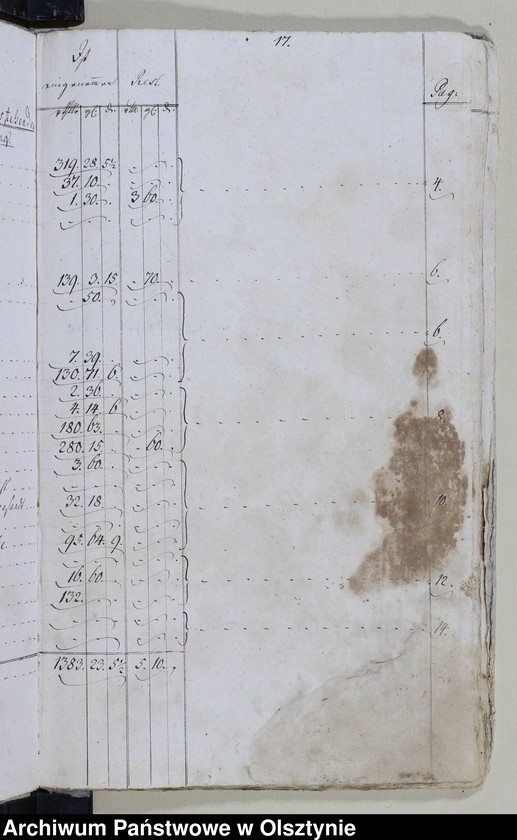 17.
Ist
eingenommen Rest.
Pag.
rthlr gl. d. rth gl. d.
319. 28. 5½
37. 10. 4.
1. 30. 3 60.
139. 3. 15. 70. 6.
50.
6.
7. 39.
130. 71. 6
2. 36.
4. 14. 6 8.
180. 63.
280. 15. 60.
3. 60.
32. 18 10.
95. 64. 9.
16. 60. 12.
132.
14.
1383. 23. 5½ 5. 10.
Archiwum Państwowe w Olsztynie